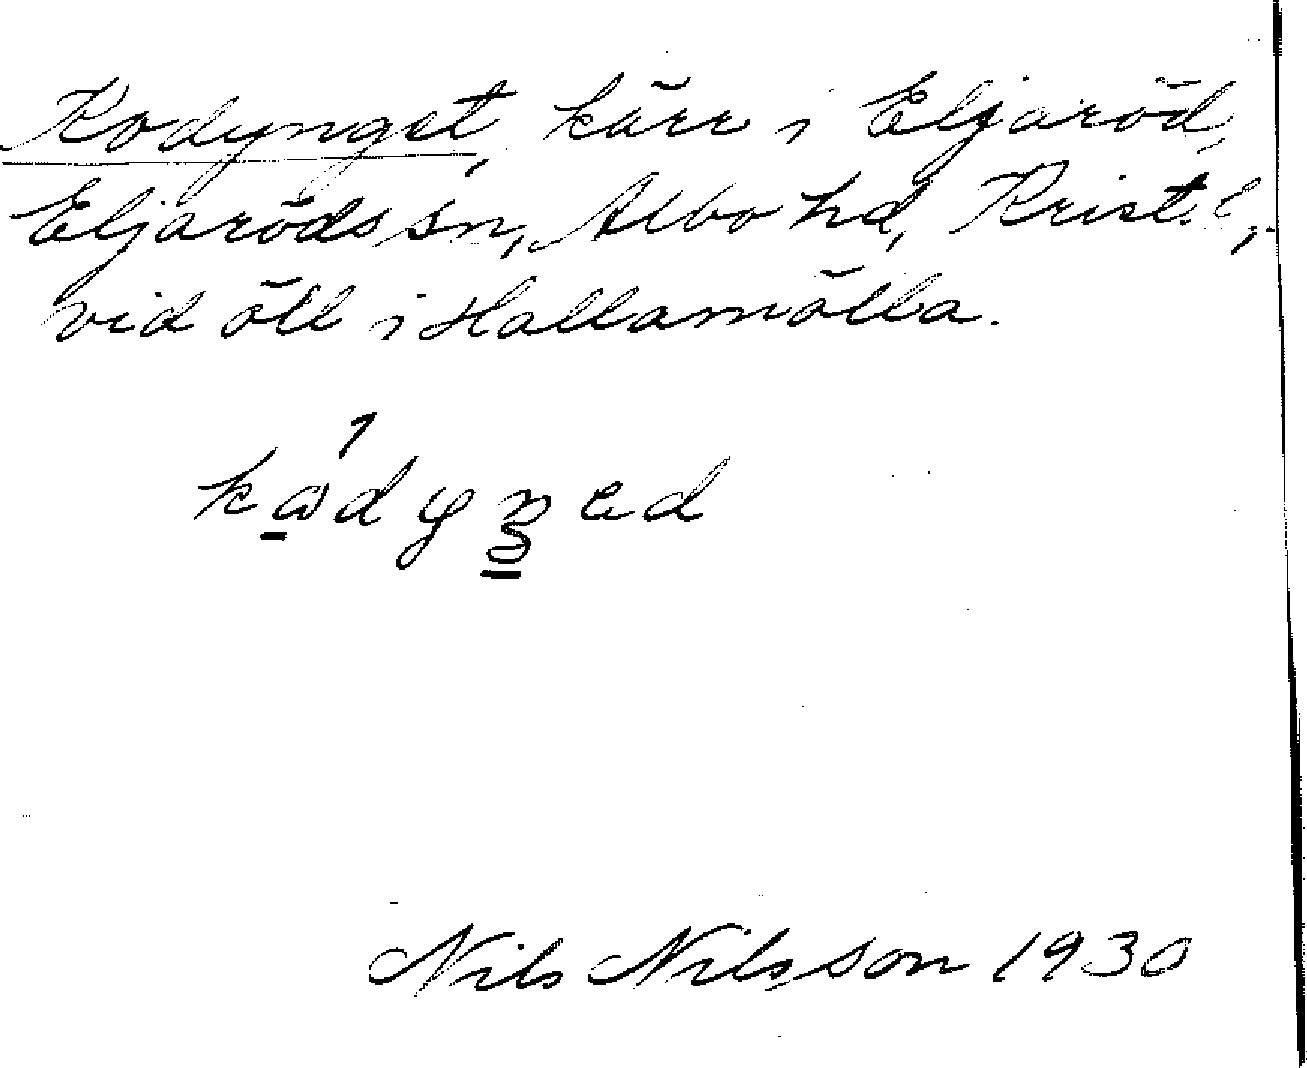 Kodynget, kärr i Eljaröd,
Eljaröds sn, Albo hd, Krist. l,
vid öll i Hallamölla.
Nils Nilsson 1930